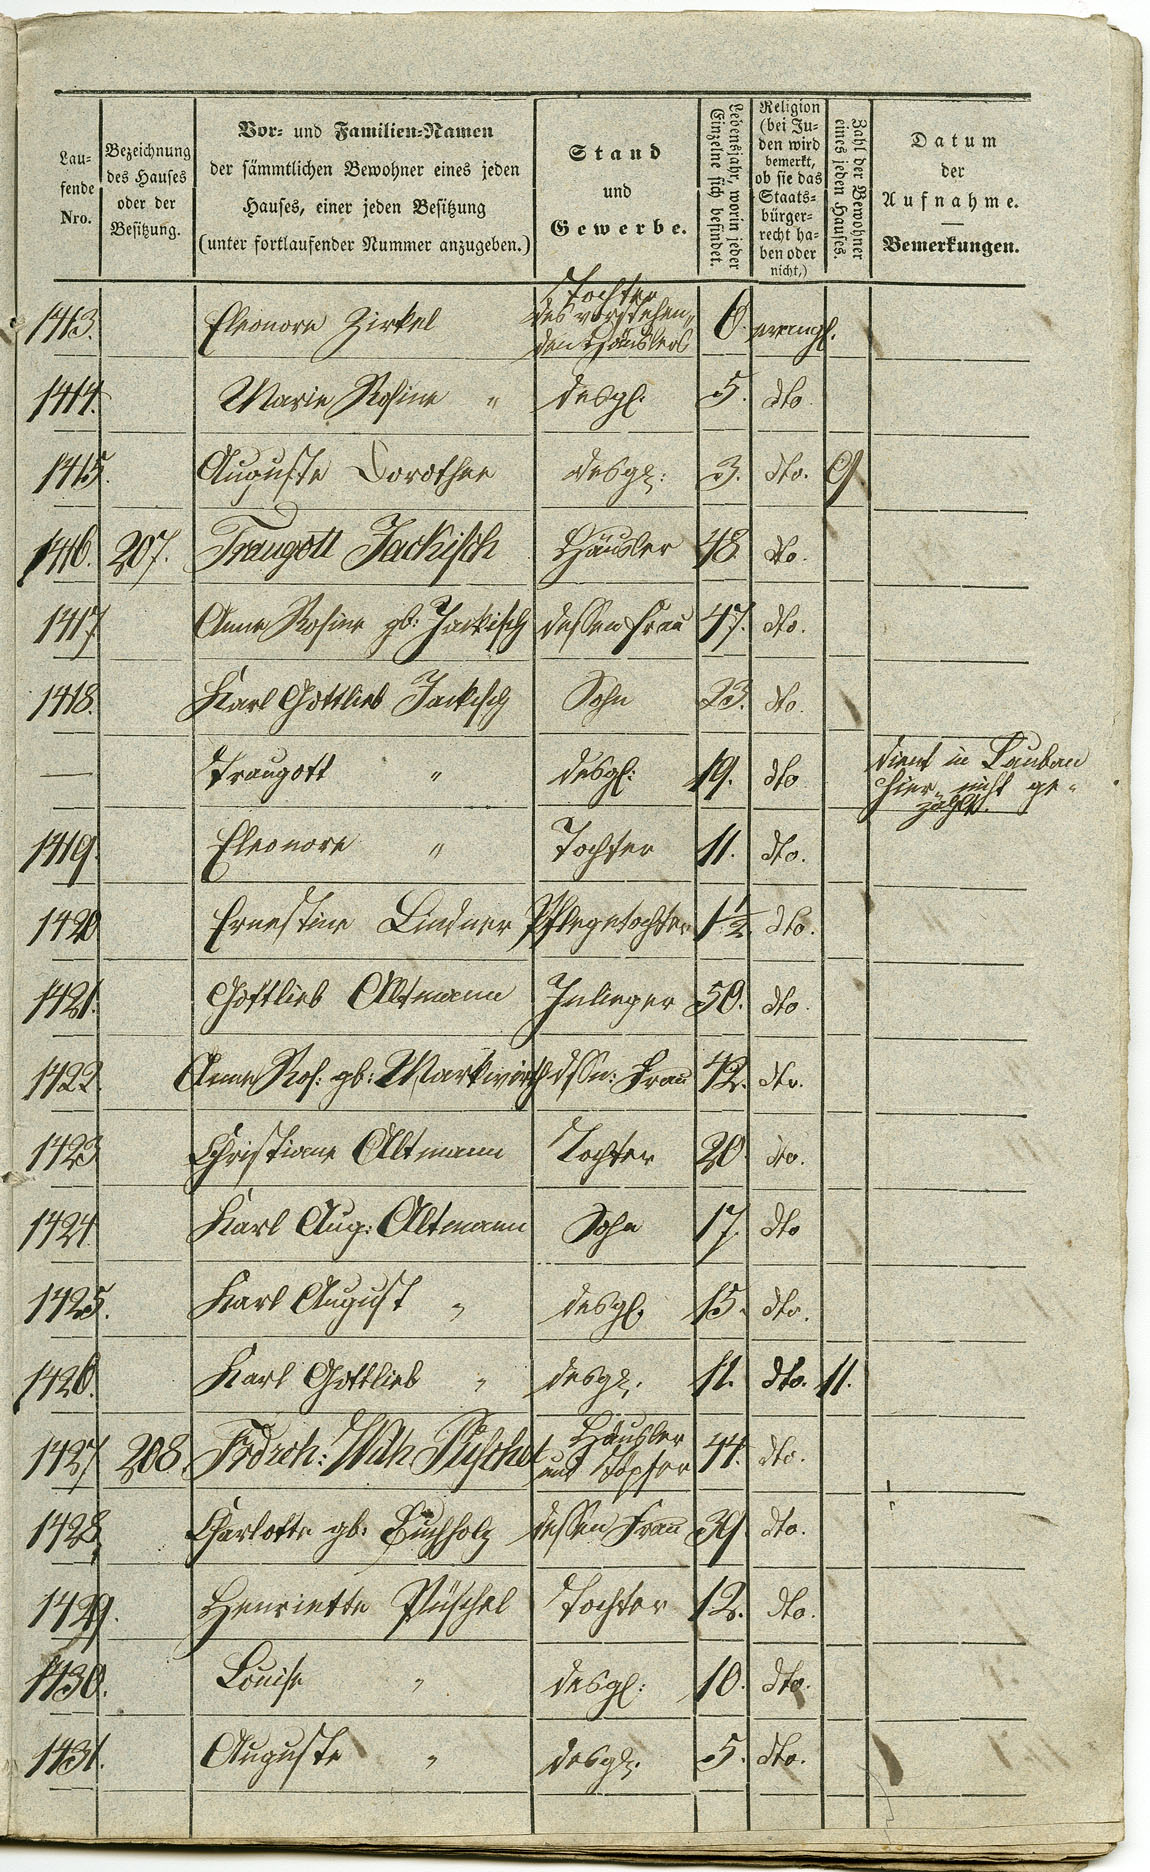 Lau-
fende
Nro.
Bezeichnung
des Hauses
oder der
Besitzung.
Vor- und Familien-Namen
der sämmtlichen Bewohner eines jeden
Hauses, einer jeden Besitzung
(unter fortlaufender Nummer anzugeben.)
Stand
und
Gewerbe.
Lebensjahr, worin jeder
Einzelne sich befindet.
Religion
(bei Ju-
den wird
bemerkt,
ob sie das
Staats-
bürger-
recht ha-
ben oder
nicht,)
Zahl der Bewohner
eines jeden Hauses.
Datum
der
Aufnahme.
Bemerkungen.
1413. Eleonore Zirkel Tochter des vorstehen- den Häuslers 6 evangl.
1414. Marie Rosine " desgl: 5. dto
1415. Auguste Dorothee desgl: 3. dto. 9
1416. 207. Traugott Jackisch Häusler 48 dto.
1417 Anne Rosine gb: Jackisch dessen Frau 47. dto.
1418. Karl Gottlieb Jackisch Sohn 23. dto.
— Traugott " desgl: 19. dto dient in Lauban hier nicht ge- zählt.
1419. Eleonore " Tochter 11. dto.
1420 Ernestine Lindner Pflegetochter 1½ dto.
1421. Gottlieb Altmann Inlieger 50. dto.
1422. Anne Ros: gb: Markwirth dssn: Frau 42. dto.
1423 Christiane Altmann Tochter 20. dto.
1424. Karl Aug: Altmann Sohn 17. dto
1425. Karl August " desgl. 15. dto.
1426. Karl Gottlieb " desgl. 11. dto. 11.
1427 208 Frdrch: Wilh Püschel Häusler und Töpfer 44. dto.
1428. Charlotte gb: Buchholz dessen Frau 39. dto.
1429. Henriette Püschel Tochter 12. dto.
1430. Louise " desgl: 10. dto.
1431. Auguste " desgl. 5. dto.